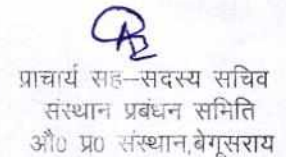 प्राचार्य सह–सदस्य सचिव
संस्थान प्रबंधन समिति
औ० प्र० संस्थान,बेगूसराय